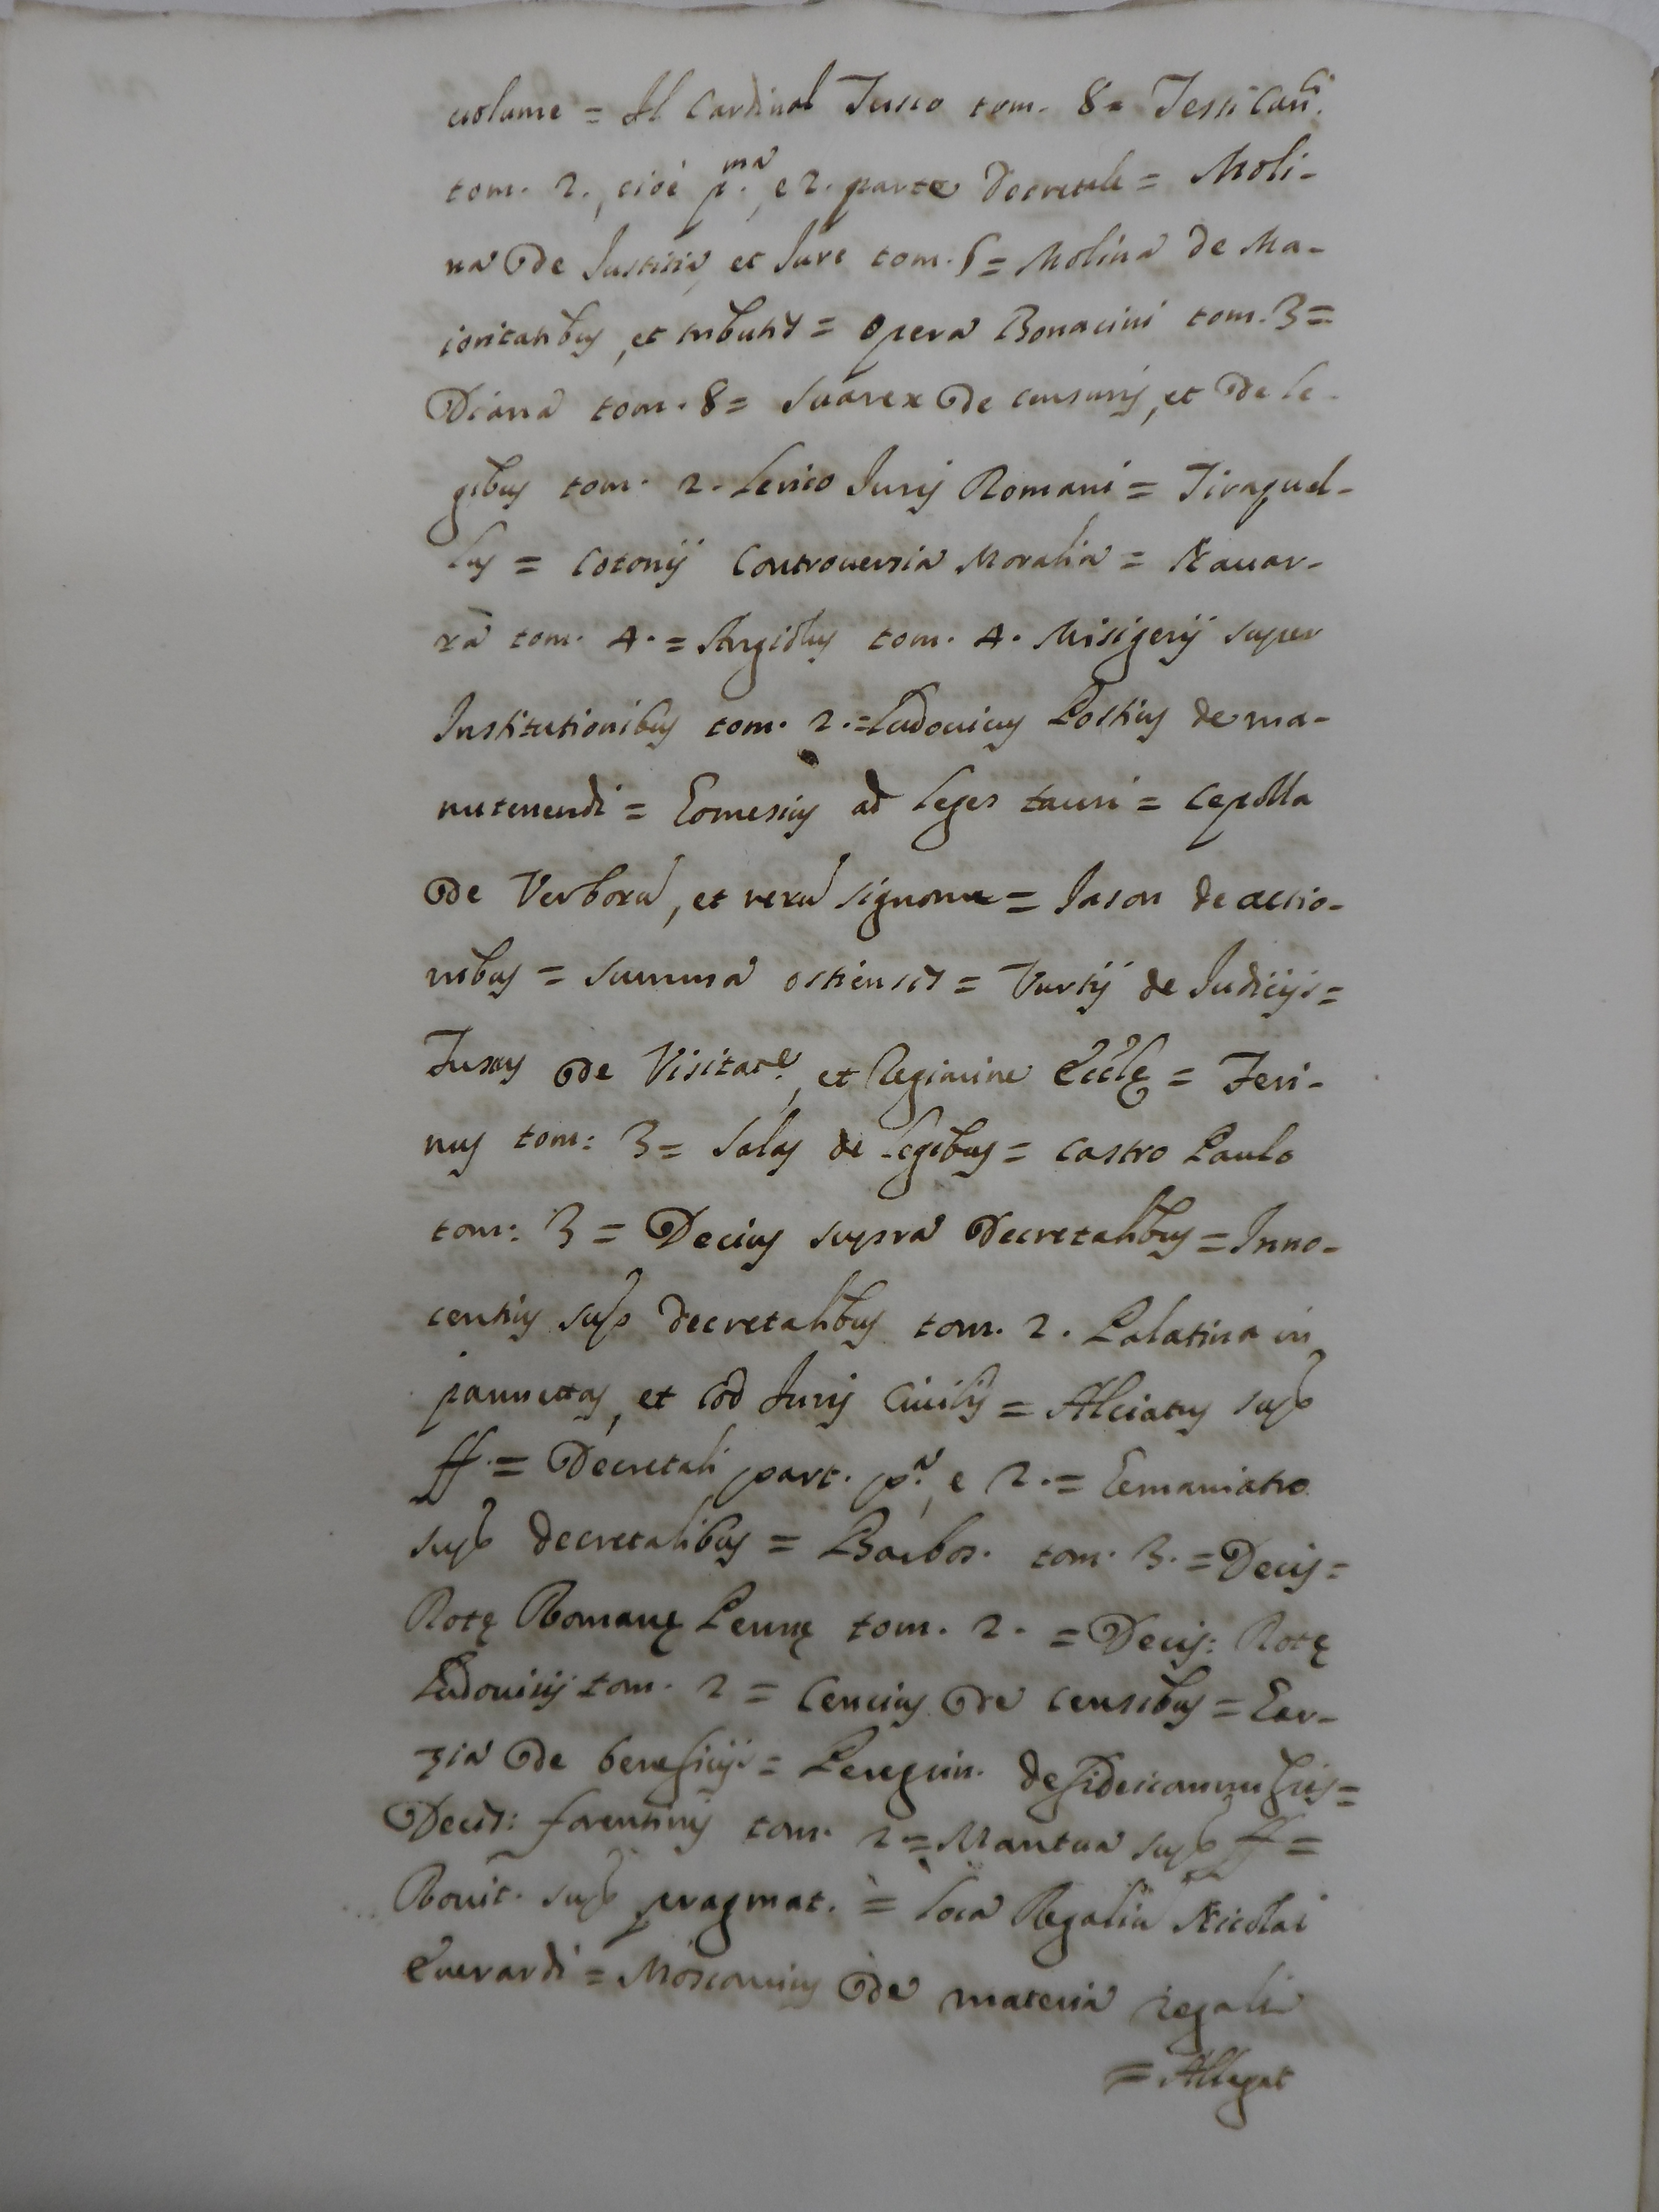 uolume = Il Cardinal Tusco tom. 8 = Testi Can.ci
tom. 2., cioè p.ma, e 2. parte Decretale = Moli-
na De Iustitia, et Iure tom. 6 = Molina de Ma-
ioritatibus, et tributis = Opera Bonacini tom. 3 =
Diana tom. 8 = Suarex De censuris, et De le-
gibus tom. 2. Lexico Iuris Romani = Tiraquel-
lus = Cotonij Controuersia Moralia = Nauar-
ra tom. 4. = Argidius tom. 4. Misigerij super
Institutionibus tom. 2. = Ludouicus Postius de ma-
nutenendi = Gomesius ad leges tauri = Cepolla
De Verborũ, et rerũ signone = Iason de actio-
nibus = Summa ostiensis = Vurtij de Iudicijs =
Tuscus De Visitat.e, et Regimine Eccłę = Feri-
nus tom: 3 = Salas de legibus = Castro Paulo
tom: 3 = Decius supra Decretalibus = Inno-
centius sup decretalibus tom. 2. Palatina in
pannettas, et Cod Iuris Ciuilis = Alciatus sup
ff. = Decretali part. p.a, e 2. = Gemaniatro
sup decretalibus = Barbos. tom. 3. = Decis =
Rotę Romanę Pennę tom. 2. = Decis: Rotę
Ludouisij tom. 2 = Cencius De censibus = Gar-
zia De beneficijs = Peregrin. de fideicommissis =
Decis: forentinis tom. 2 = Mantua sup ff =
Rouit. sup pragmat. = Loca Regalia Nicolai
Euerardi = Moscouius De materia regali
= Allegat